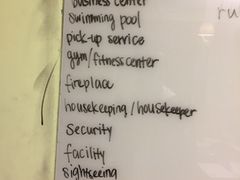 business center
swimming pool
pick-up service
gym/fitness center
fireplace
housekeeping/housekeeper
Security
facility
sightseeing
ru